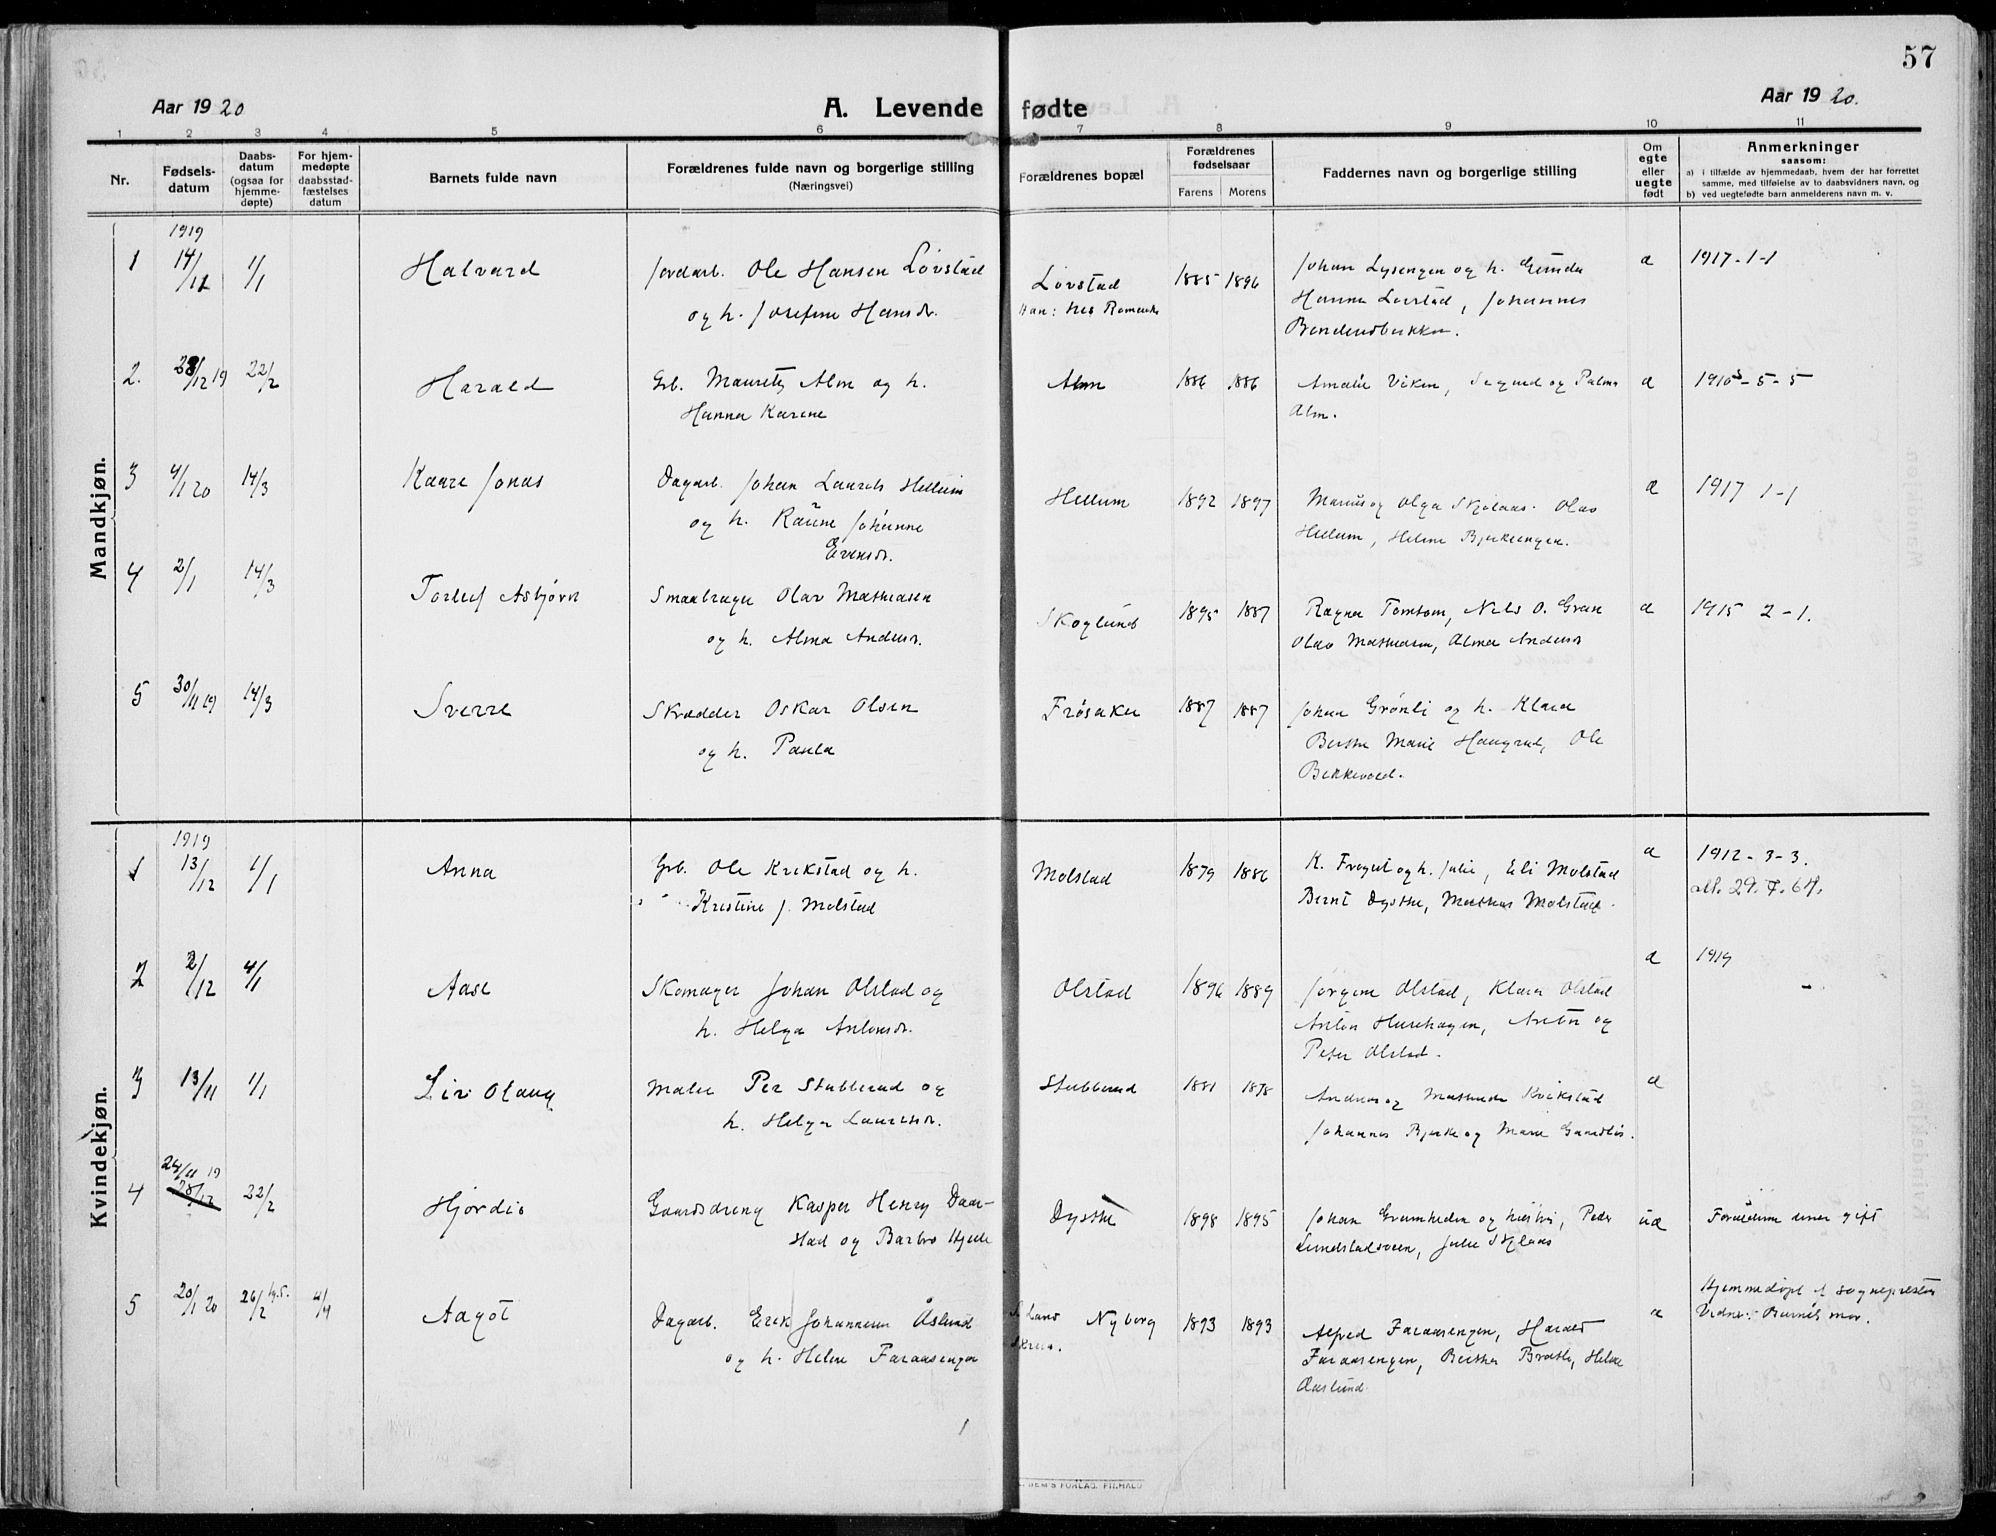 57
Aar 1920
A. Levende fødte
Aar 1920.
1 2 3 4 5 6 7 8 9 10 11
Nr.
Fødsels-
datum
Daabs-
datum
(ogsaa for
hjemme-
døpte)
For hjem-
medøpte
daabsstad-
fæstelses
datum
Barnets fulde navn
Forældrenes fulde navn og borgerlige stilling
(Næringsvei)
Forældrenes bopæl
Forældrenes
fødselsaar
Farens Morens
Faddernes navn og borgerlige stilling
Om
egte
eller
uegte
født
Anmerkninger
saasom:
a) i tilfælde av hjemmedaab, hvem der har forrettet
samme, med tilføielse av to daabsvidners navn, og
b) ved uegtefødte barn anmelderens navn m. v.
Mandkjøn.
1919
1 14/12 1/1 Halvard Jordarb. Ole Hansen Lovstad Lovstad 1885 1896 Johan Lysengen og h. æ 1917-1-1
og h. Josefine Hansdr. Han: Nes Romerike Hanna Lovstad, Johannes
2. 28/12 19 22/2 Harald Grb. Mauritz Alm og h. Alm 1886 1886 Amalie Viken, Sigurd og Palma æ 1910-5-5
Hanna Karine Alm.
3 4/1 20 14/3 Kaare Jonas Dagarb. Johan Laurits Hellum Hellum 1892 1897 Marius og Olga Skjelaas. Olav æ 1917 1-1
og h. Karine Johanne Hellum, Helene Bjerkeengen.
Evensdr.
4 2/1 14/3 Torleif Asbjørn Smaabruger Olav Mathiasen Skoglund 1895 1887 Ragna Tomtom, Nils O. Gran æ 1915 2-1.
og h. Alma Andersdr. Olav Mathiasen, Alma Andersdr
5 30/11 19 14/3 Sverre Skrædder Oskar Olsen Frøsaker 1887 1887 Johan Grønli og h. Klara
og h. Paula Berthe Marie Haugrud, Ole
Bekkevold.
Kvindekjøn.
1919
1 13/12 1/1 Anna Grb. Ole Krikstad og h. Molstad 1879 1886 K. Fregset og h. Julie, Eli Molstad æ 1912-3-3.
Kristine J. Molstad Bernt Dysthe, Mathias Molstad. att. 29.7.64.
2 2/12 4/1 Aase Skomager Johan Olstad og Olstad 1896 1889 Jørgine Olstad, Klara Olstad æ 1919
h. Helga Antonsdr. Anton Hurehagen, Anton og
Peter Olstad.
3 13/11 1/1 Liv Olaug Maler Per Stubberud og Stubberud 1881 1878 Andreas og Mathilde Kvikstad æ
h. Helga Lauritsdr. Johannes Bjerke og Marie
4 24/11 19 28/12 22/2 Hjørdis Gaardsdreng Kasper Henry Daar- Dysthe 1898 1895 Johan Gramheden og hustru, Peder uæ Forældrene senere gift
stad og Barbro Hjelle Lundstadsveen, Julie Skjelaas
5 20/1 20 26/2 hj.d. 4/4 Aagot Dagarb. Erik Johannesen Åslund S. Land Nyborg 1893 1893 Alfred Faraasengen, Harald æ Hjemmedøpt af sognepresten
og h. Helene Faraasengen Faraasengen, Berthe Bratli, Helene Vidner: Barnets mor.
Aaslund